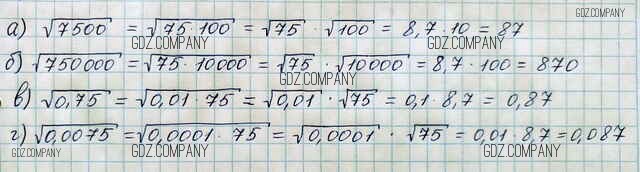 GDZ.COMPANY
а) √7500 = √75·100 = √75 · √100 = 8,7·10 = 87
GDZ.COMPANY GDZ.COMPANY
б) √750000 = √75·10000 = √75 · √10000 = 8,7·100 = 870
GDZ.COMPANY
в) √0,75 = √0,01·75 = √0,01 · √75 = 0,1·8,7 = 0,87
г) √0,0075 = √0,0001·75 = √0,0001 · √75 = 0,01·8,7=0,087
GDZ.COMPANY GDZ.COMPANY GDZ.COMPANY